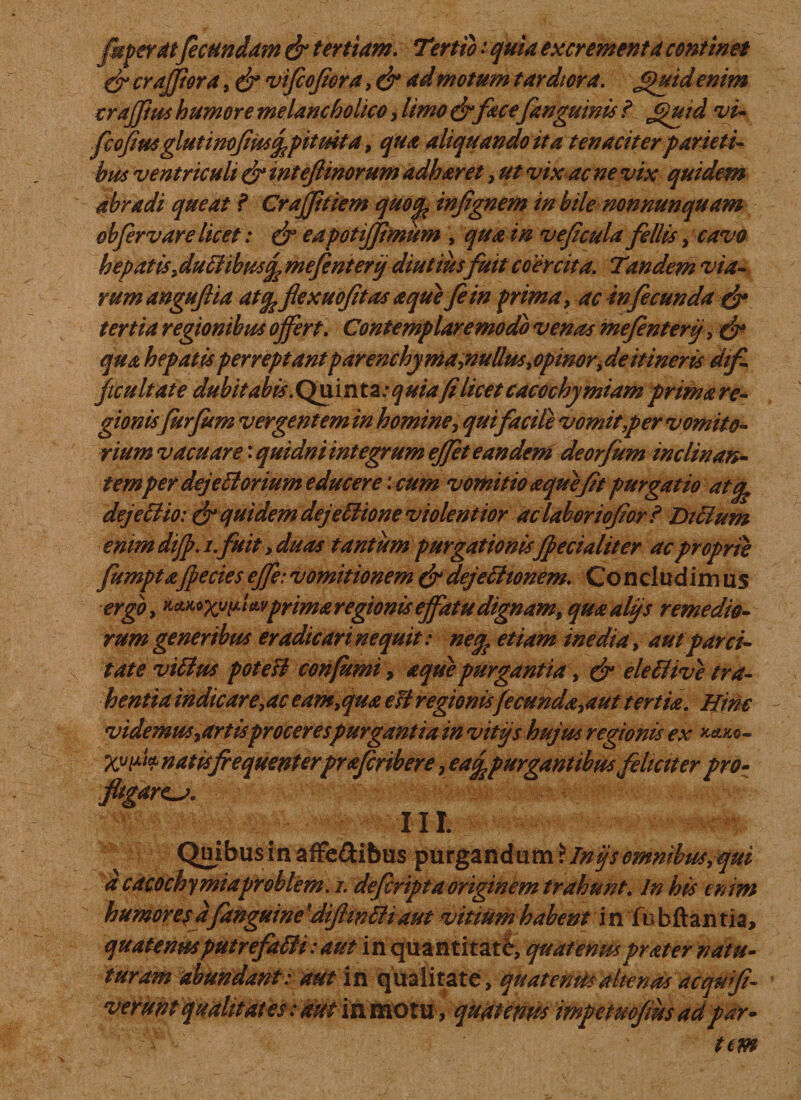 ſuperat ſecundam & tertiam. Tertiò: quia excrementa continet
& craſſiora, & viſcoſiora, & ad motum tardiora. Quid enim
craſſius humore melancholico, limo & fæce ſanguinis? Quid vi-
ſcoſius glutinoſiusq; pituita, quæ aliquando ita tenaciter parieti-
bus ventriculi & inteſtinorum adhæret, ut vix ac ne vix quidem
abradi queat? Craſſitiem quoq; inſignem in bile nonnunquam
obſervare licet: & ea potiſſimùm, quæ in veſicula fellis, cavo
hepatis, ductibusq; meſenterij diutiùs fuit coërcita. Tandem via-
rum anguſtia atq; flexuoſitas æquè ſe in prima, ac in ſecunda &
tertia regionibus offert. Contemplare modò venas meſenterij, &
quæ hepatis perreptant parenchyma, nullus, opinor, de itineris dif-
ficultate dubitabis. Quinta: quia ſi licet cacochymiam primæ re-
gionis ſurſum vergentem in homine, qui facilè vomit, per vomito-
rium vacuare: quidni integrum eſſet eandem deorſum inclinan-
tem per dejectorium educere: cum vomitio æquè ſit purgatio atq;
dejectio: & quidem dejectione violentior ac laborioſior? Dictum
enim diſp. 1. fuit, duas tantùm purgationis ſpecialiter ac propriè
ſumptæ ſpecies eſſe: vomitionem & dejectionem. Concludimus
ergò, κακοχυμίαν primæ regionis effatu dignam, quæ alijs remedio-
rum generibus eradicari nequit: neq; etiam inedia, aut parci-
tate victus poteſt conſumi, æquè purgantia, & electivè tra-
hentia indicare, ac eam, quæ eſt regionis ſecundæ, aut tertiæ. Hinc
videmus, artis proceres purgantia in vitijs hujus regionis ex κακο-
χυμίᾳ natis frequenter præſcribere, eaq; purgantibus feliciter pro-
fligare.
III.
Quibus in affectibus purgandum? In ijs omnibus, qui
à cacochymia problem. 1. deſcripta originem trahunt. In his enim
humores à ſanguine diſtincti aut vitium habent in ſubſtantia,
quatenus putrefacti: aut in quantitate, quatenus præter natu-
turam abundant: aut in qualitate, quatenus alienas acquiſi-
verunt qualitates: aut in motu, quatenus impetuoſiùs ad par-
tem